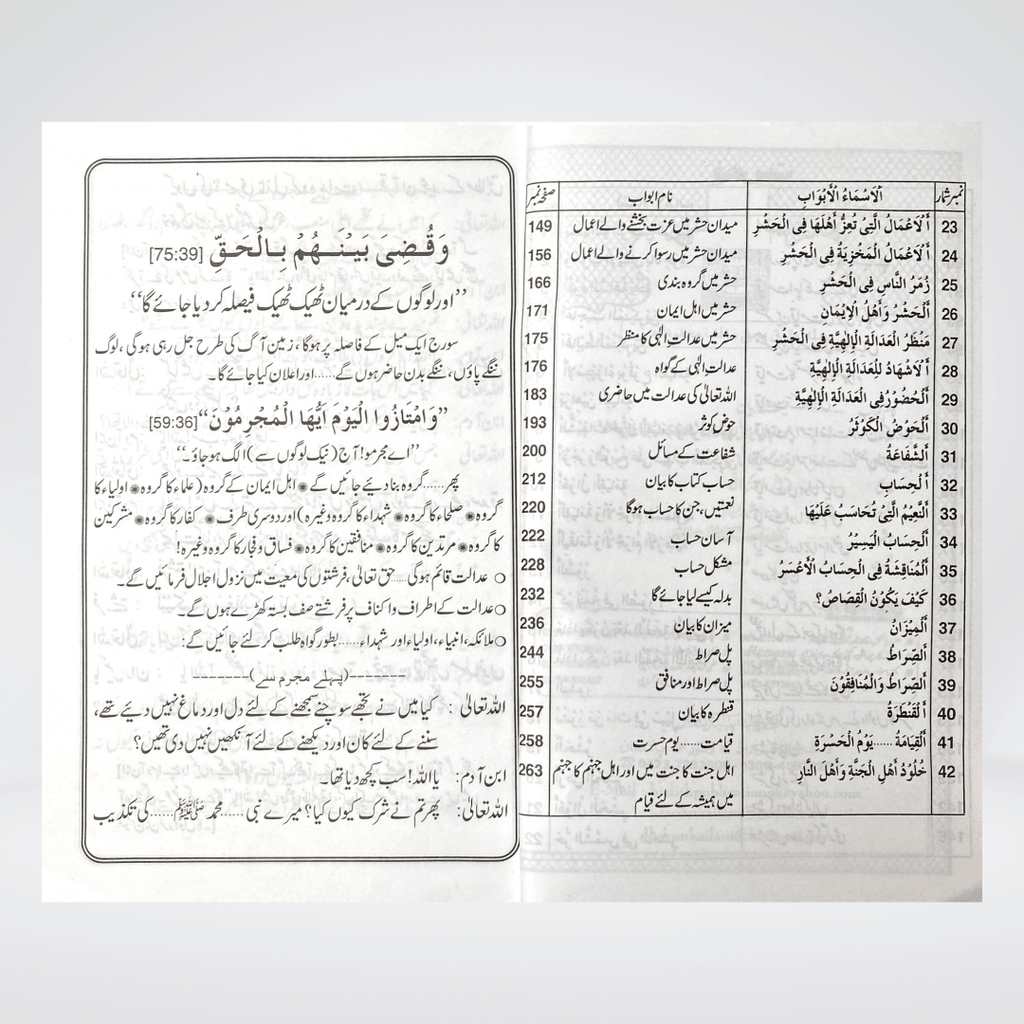 نمبر شمار اَلْاَسْمَاءُ الْاَبْوَاب نام ابواب صفحہ نمبر
23 اَلْاَعْمَالُ الَّتِیْ تُعِزُّ اَهْلَهَا فِی الْحَشْرِ میدان حشر میں عزت بخشنے والے اعمال 149
24 اَلْاَعْمَالُ الْمَخْزِیَةُ فِی الْحَشْرِ میدان حشر میں رسوا کرنے والے اعمال 156
25 زُمَرُ النَّاسِ فِی الْحَشْرِ حشر میں گروہ بندی 166
26 اَلْحَشْرُ وَاَهْلُ الْاِیْمَانِ حشر میں اہل ایمان 171
27 مَنْظَرُ الْعَدَالَةِ الْاِلٰهِیَّةِ فِی الْحَشْرِ حشر میں عدالت الٰہی کا منظر 175
28 اَلْاَشْهَادُ لِلْعَدَالَةِ الْاِلٰهِیَّةِ عدالت الٰہی کے گواہ 176
29 اَلْحُضُوْرُ فِی الْعَدَالَةِ الْاِلٰهِیَّةِ اللہ تعالیٰ کی عدالت میں حاضری 183
30 اَلْحَوْضُ الْکَوْثَرُ حوض کوثر 193
31 اَلشَّفَاعَةُ شفاعت کے مسائل 200
32 اَلْحِسَابِ حساب کتاب کا بیان 212
33 اَلنَّعِیْمُ الَّتِیْ تُحَاسَبُ عَلَیْهَا نعمتیں، جن کا حساب ہوگا 220
34 اَلْحِسَابُ الْیَسِیْرُ آسان حساب 222
35 اَلْمُنَاقِشَةُ فِی الْحِسَابُ الْاَعْسَرُ مشکل حساب 228
36 کَیْفَ یَکُوْنُ الْقِصَاصُ؟ بدلہ کیسے لیا جائے گا 232
37 اَلْمِیْزَانُ میزان کا بیان 236
38 اَلصِّرَاطُ پل صراط 244
39 اَلصِّرَاطُ وَالْمُنَافِقُوْنَ پل صراط اور منافق 255
40 اَلْقَنْطَرَةُ قنطرہ کا بیان 257
41 اَلْقِیَامَةُ ...... یَوْمُ الْحَسْرَةِ قیامت ...... یوم حسرت 258
42 خُلُوْدُ اَهْلِ الْجَنَّةِ وَاَهْلِ النَّارِ اہل جنت کا جنت میں اور اہل جہنم کا جہنم 263
میں ہمیشہ کے لئے قیام
وَقُضِیَ بَیْنَهُمْ بِالْحَقِّ [75:39]
”اور لوگوں کے درمیان ٹھیک ٹھیک فیصلہ کر دیا جائے گا“
سورج ایک میل کے فاصلہ پر ہوگا، زمین آگ کی طرح جل رہی ہوگی، لوگ
ننگے پاؤں، ننگے بدن حاضر ہوں گے ...... اور اعلان کیا جائے گا۔
”وَامْتَازُوا الْیَوْمَ اَیُّهَا الْمُجْرِمُوْنَ“ [59:36]
”اے مجرمو! آج (نیک لوگوں سے) الگ ہو جاؤ۔“
پھر ...... گروہ بنا دیئے جائیں گے ٭ اہل ایمان کے گروہ (علماء کا گروہ ٭ اولیاء کا
گروہ ٭ صلحاء کا گروہ ٭ شہداء کا گروہ وغیرہ) اور دوسری طرف ٭ کفار کا گروہ ٭ مشرکین
کا گروہ ٭ مرتدین کا گروہ ٭ منافقین کا گروہ ٭ فساق و فجار کا گروہ وغیرہ!
○ عدالت قائم ہوگی ...... حق تعالیٰ، فرشتوں کی معیت میں نزول اجلال فرمائیں گے۔
○ عدالت کے اطراف و اکناف پر فرشتے صف بستہ کھڑے ہوں گے۔
○ ملائکہ، انبیاء، اولیاء اور شہداء ...... بطور گواہ طلب کر لئے جائیں گے:
-------(پہلے مجرم سے)-------
اللہ تعالیٰ : کیا میں نے تجھے سوچنے سمجھنے کے لئے دل اور دماغ نہیں دیئے تھے،
سننے کے لئے کان اور دیکھنے کے لئے آنکھیں نہیں دی تھیں؟
ابن آدم: یا اللہ! سب کچھ دیا تھا۔
اللہ تعالیٰ: پھر تم نے شرک کیوں کیا؟ میرے نبی ...... محمد ﷺ ...... کی تکذیب